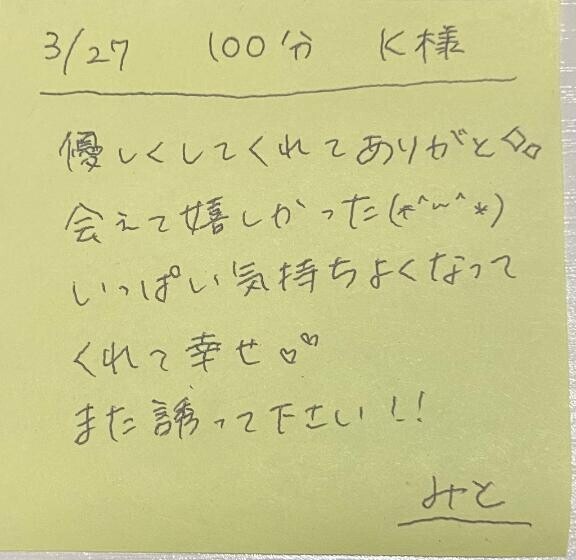 3/27 100分 K様
優しくしてくれてありがと◇◇
会えて嬉しかった(*^~^*)
いっぱい気持ちよくなって
くれて幸せ♡♡
また誘って下さい!!
みと